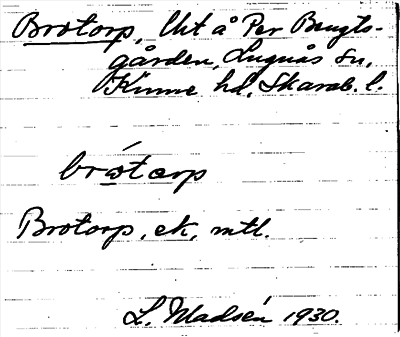 Brotorp, Utt å Per Bengts-
gården, Lugnås sn,
Kinne hd, Skarab. l.
brώtɑrp
Brotorp, ek, mtl.
L. Madsén 1930.